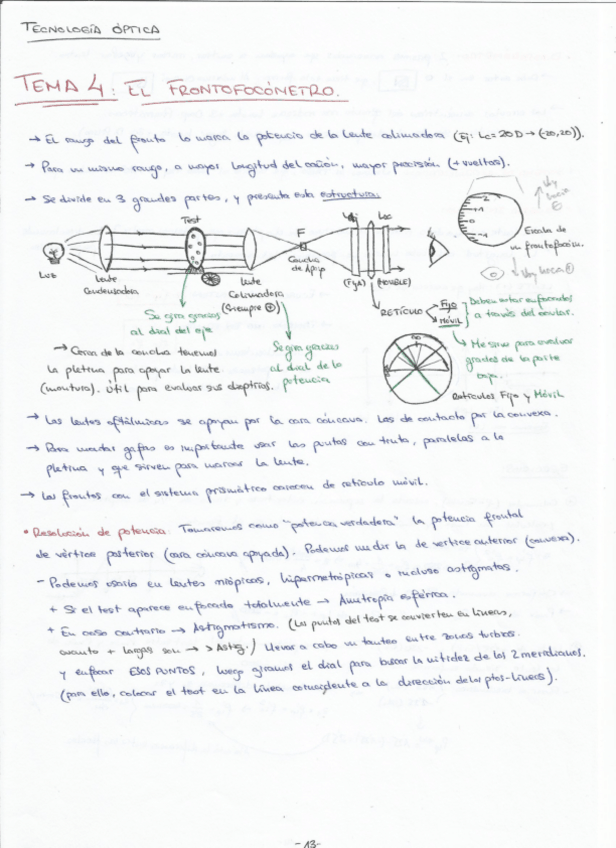 TECNOLOGÍA ÓPTICA
TEMA 4: EL FRONTOFOCÓNETRO.
→ El rango del fronto lo marca la potencia de la lente colimadora (Ej: Lc = 20D → (-20,20)).
→ Para un mismo rango, a mayor longitud del cañón, mayor precisión (+ vueltas).
→ Se divide en 3 grandes partes, y presenta esta estructura:
Luz
Lente Condensadora
Test
Lente Colimadora (siempre ⊕)
F
Concha de Apoyo
Loc
(FIJA)
(MOVIBLE)
Escala de un frontofocóm.
RETÍCULO
FIJO
MÓVIL
Deben estar enfocados a través del ocular.
Me sirve para evaluar grados de la parte
Retículos Fijo y Móvil
Se gira gracias al dial del eje
Se gira gracias al dial de la potencia
→ Cerca de la concha tenemos
la pletina para apoyar la lente
(montura). Útil para evaluar sus dioptrías.
→ Las lentes oftálmicas se apoyan por la cara cóncava. Las de contacto por la convexa.
→ Para montar gafas es importante usar las puntas con tinta, paralelas a la
pletina y que sirven para marcar la lente.
→ Los frontos con el sistema prismático carecen de retículo móvil.
• Resolución de potencia: Tomaremos como "potencia verdadera" la potencia frontal
de vértice posterior (cara cóncava apoyada). Podemos medir la de vértice anterior (convexa).
- Podemos usarlo en lentes miópicas, hipermetrópicas o incluso astígmatas.
+ Si el test aparece enfocado totalmente → Ametropía esférica.
+ En caso contrario → Astigmatismo. (Los puntos del test se convierten en líneas,
cuanto + largas son → > Astig.) Llevar a cabo un tanteo entre zonas turbias
y enfocar ESOS PUNTOS, luego giramos el dial para buscar la nitidez de los 2 meridianos.
(para ello, colocar el test en la línea correspondiente a la dirección de los ptos-líneas).
-13-